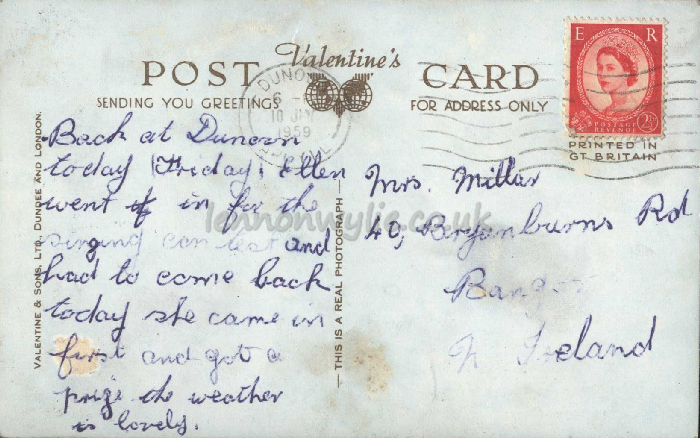 Valentine's
POST CARD
SENDING YOU GREETINGS
FOR ADDRESS ONLY
E R
POSTAGE
REVENUE
2½
PRINTED IN
GT BRITAIN
DUNOON
10 JLY
1959
ARGYLL
Back at Dunoon
today (Friday) Ellen
went in for the
singing contest and
had to come back
today she came in
first and got a
prize the weather
is lovely.
Mrs. Millar
40, Bryanburns Rd
Bangor
N Ireland
VALENTINE & SONS, LTD. DUNDEE AND LONDON.
— THIS IS A REAL PHOTOGRAPH —
lennonwylie.co.uk